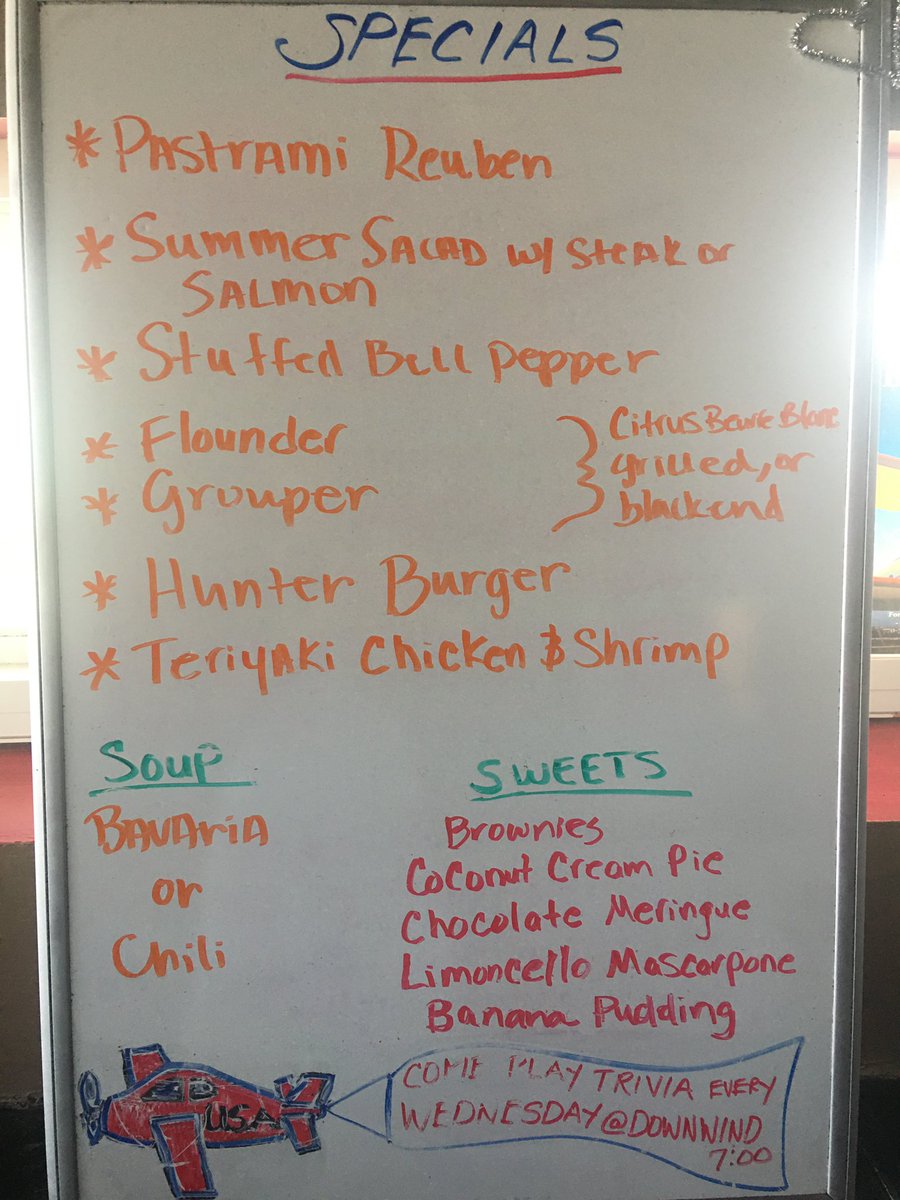 SPECIALS
* Pastrami Reuben
* Summer Salad w/ Steak or
Salmon
* Stuffed Bell Pepper
* Flounder
* Grouper
Citrus Beure Blanc
grilled, or
blackend
* Hunter Burger
* Teriyaki Chicken & Shrimp
Soup
Bavaria
or
Chili
SWEETS
Brownies
Coconut Cream Pie
Chocolate Meringue
Limoncello Mascarpone
Banana Pudding
USA
COME PLAY TRIVIA EVERY
WEDNESDAY @ DOWNWIND
7:00